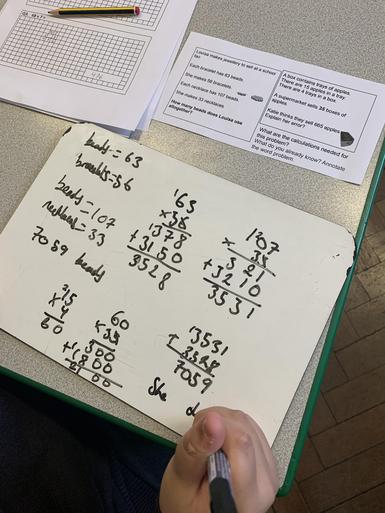 Louisa makes jewellery to sell at a school
fair.
Each bracelet has 63 beads
She makes 56 bracelets.
Each necklace has 107 beads
She makes 33 necklaces
How many beads does Louisa use
altogether?
A box contains trays of apples.
There are 15 apples in a tray.
There are 4 trays in a box.
A supermarket sells 35 boxes of
apples.
Katie thinks they sell 665 apples.
Explain her error?
What are the calculations needed for
this problem?
What do you already know? Annotate
the word problem.
beads = 63
bracelets = 56
beads = 107
necklaces = 33
7059 beads
63
378
+ 3150
3528
107
321
+ 3210
3531
15
× 4
60
60
× 35
300
+ 1800
2100
3531
+ 3528
7059
She